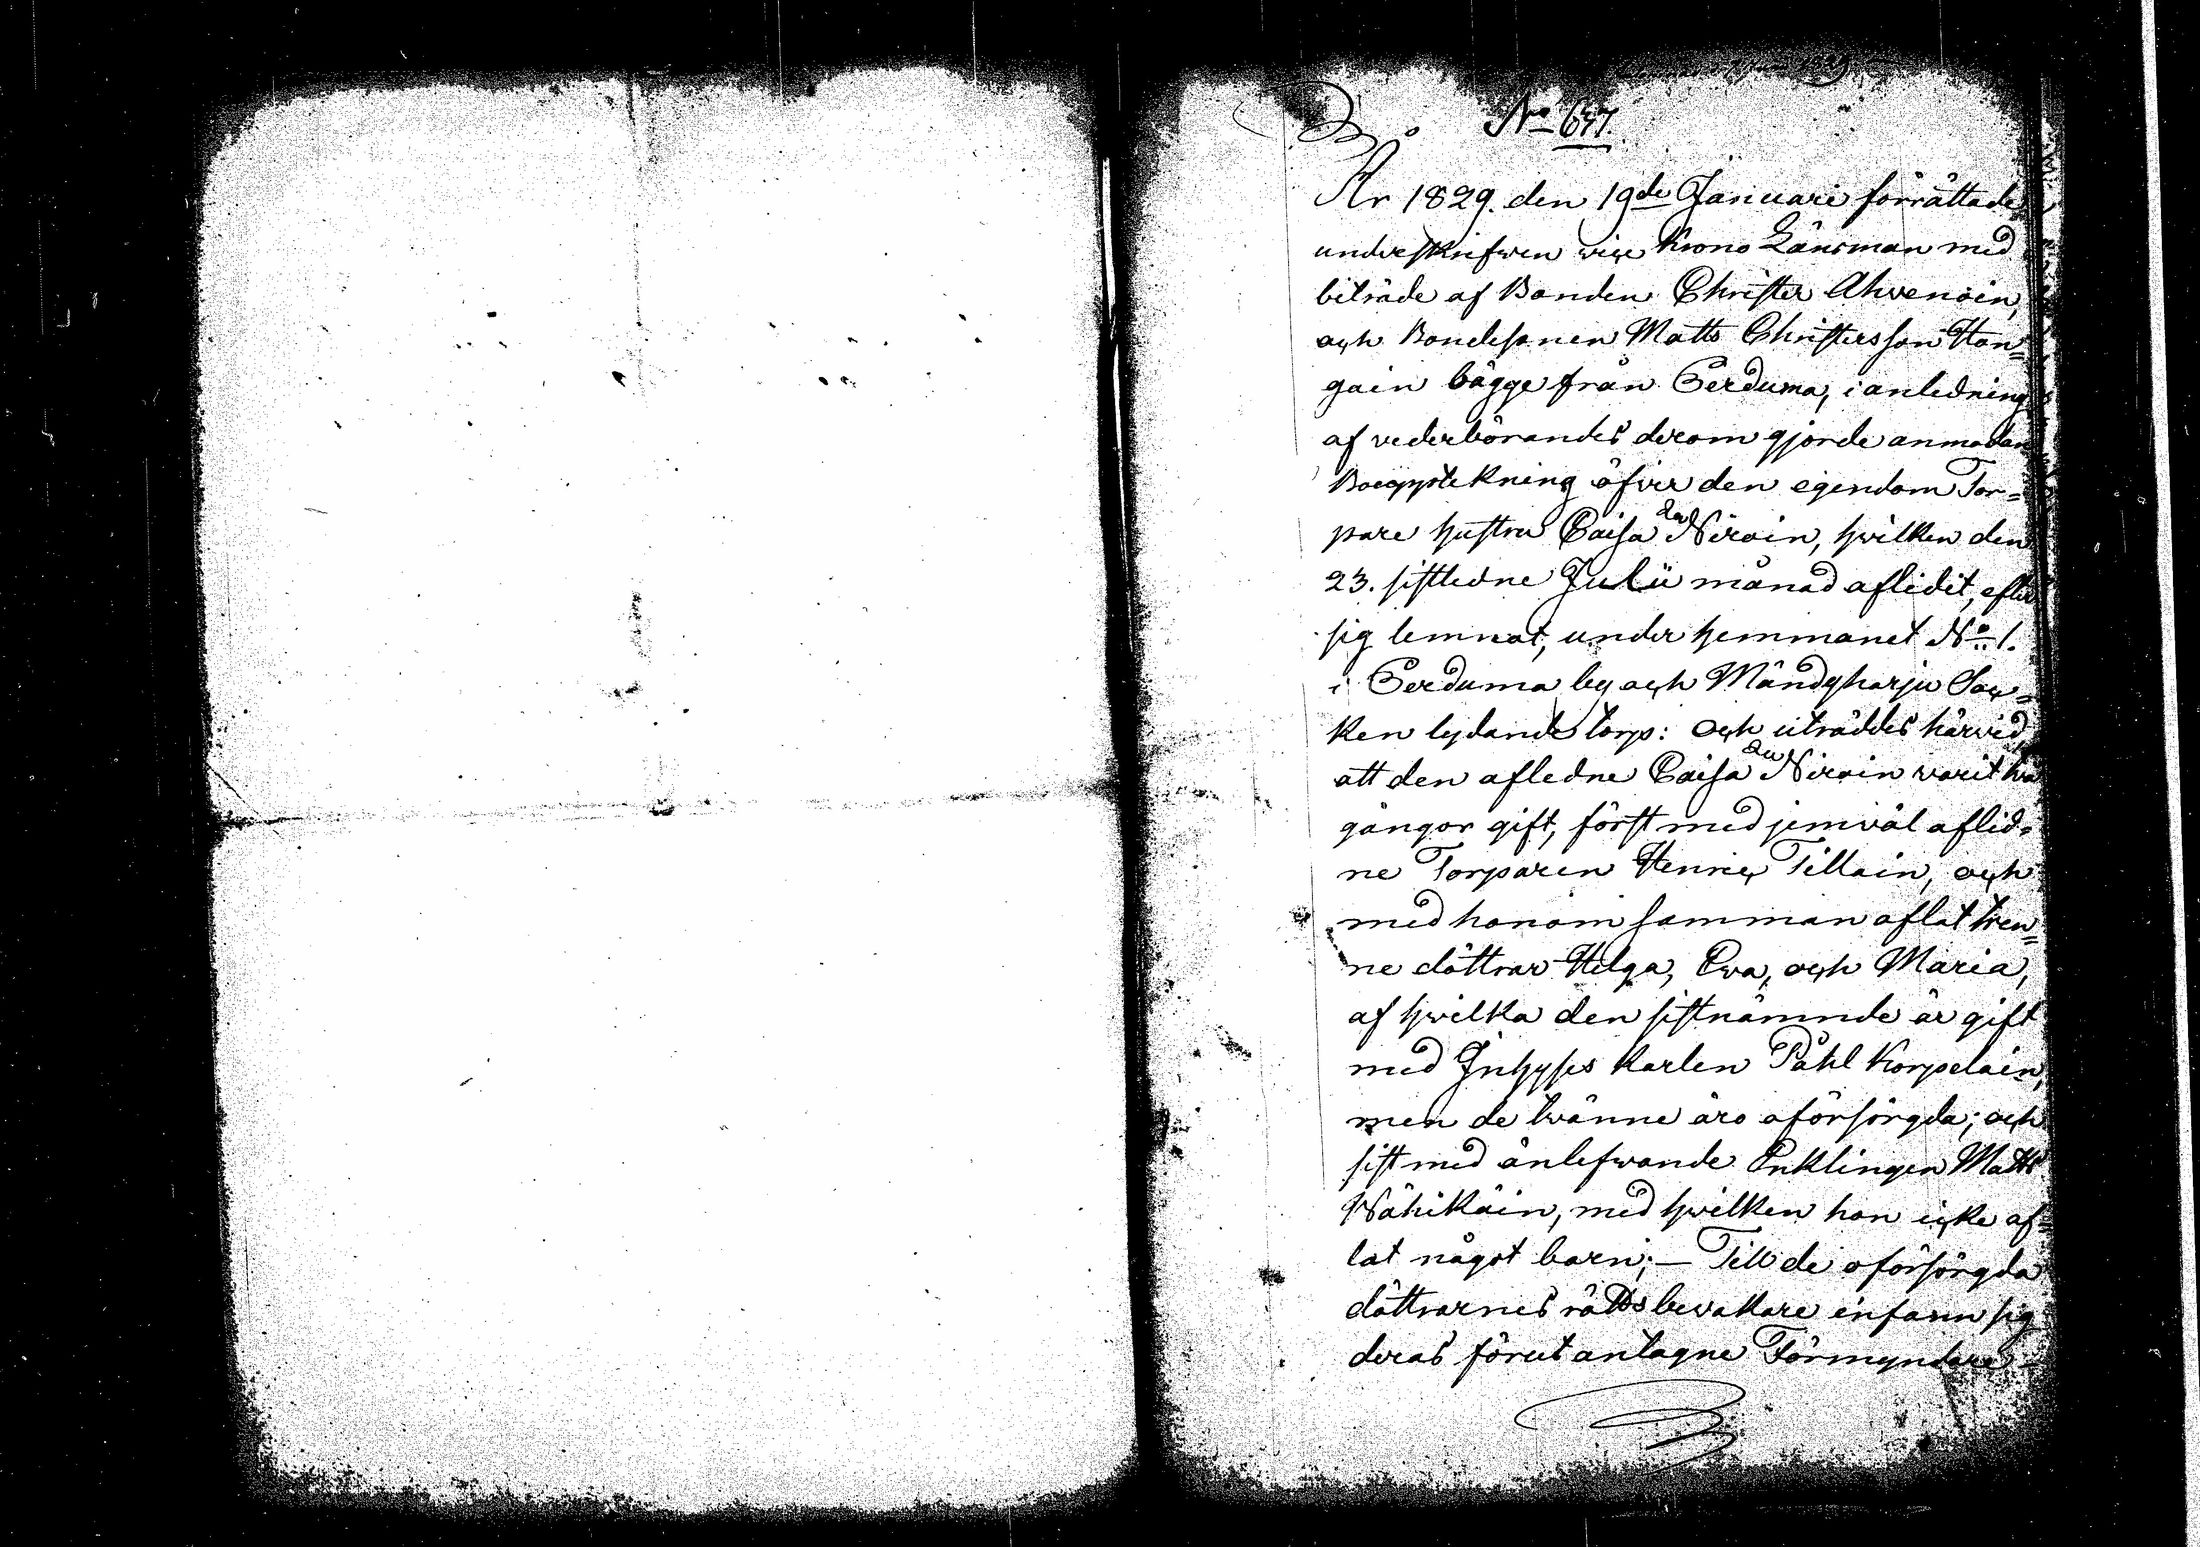 1829
No 677.
År 1829. den 19de Januari förrättade
underskrifwen vice Krono Länsman med
biträde af Bonden Christer Ahvenain,
och Bondesonen Matts Christersson Han=
gain bägge från Perduma, i anledning
af vederbörandes derom gjorde anmodan
Bouppteckning öfver den egendom Tor=
pare hustru Caisa Niroin, hvilken den
23. sistledne Julii månad aflidit, efter
sig lemnat, under hemmanet No 1.
i Perduma by och Mändyharju Soc=
ken lydande torp: och uträddes härvid
att den afledne Caisa Niroin varit två
gångor gift, först med jemväl aflid=
ne Torparen Henric Tillain, och
med honom samman aflat tren=
ne döttrar Helga, Eva, och Maria,
af hvilka den sistnämnde är gift
med Inhyses karlen Påhl Korpelain,
men de tvänne äro oförsörgda; och
sist med änlefwande Enklingen Matts
Wähikäin, med hvilken hon icke af=
lat något barn; — Till de oförsörgda
döttrarnes rätts bevakare infann sig
deras förut antagne Förmyndare